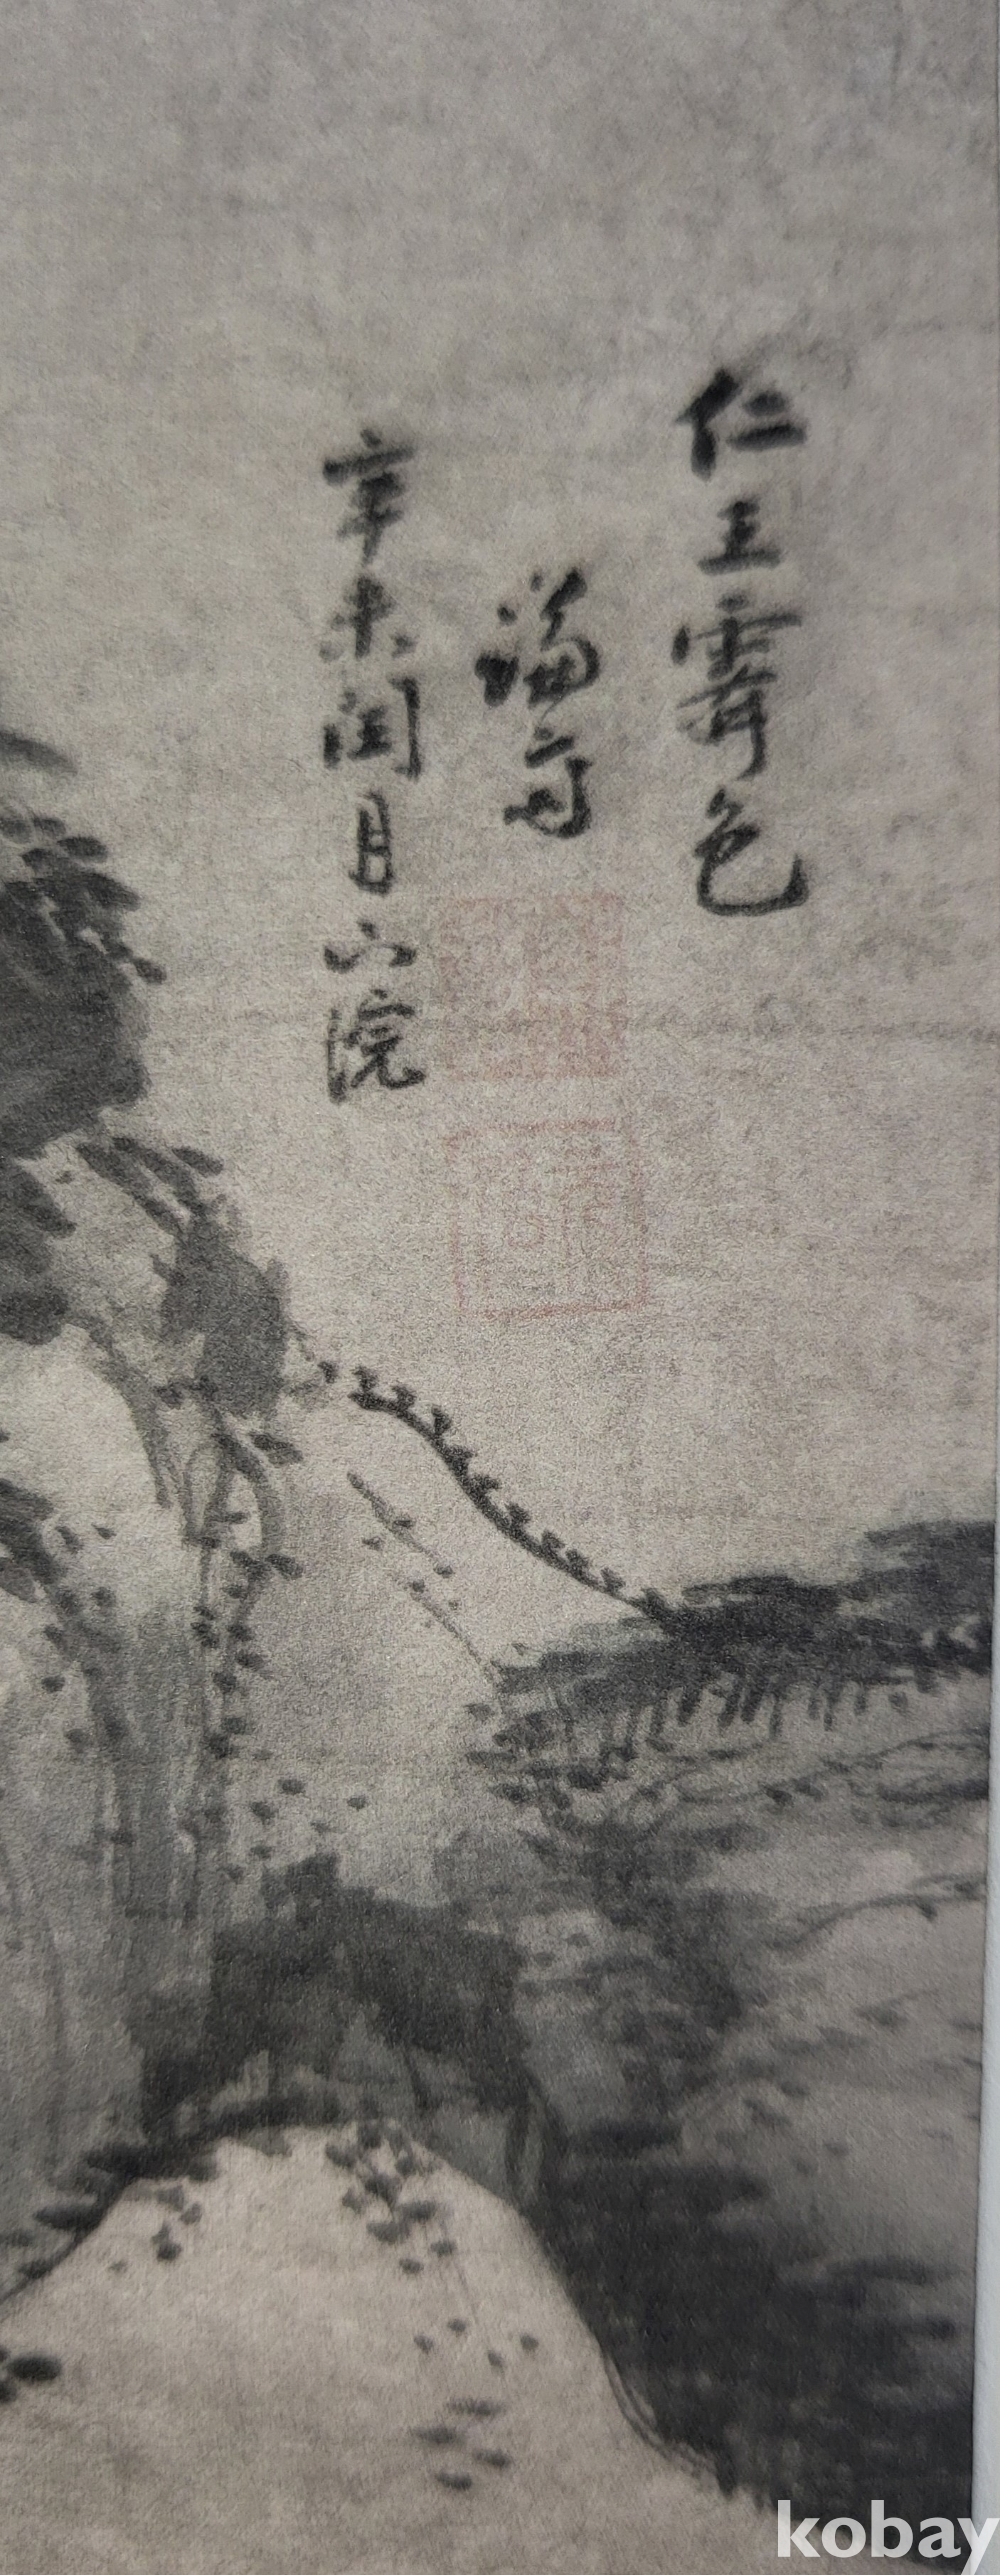 仁王霽色
謙齋
辛未閏月下浣
kobay